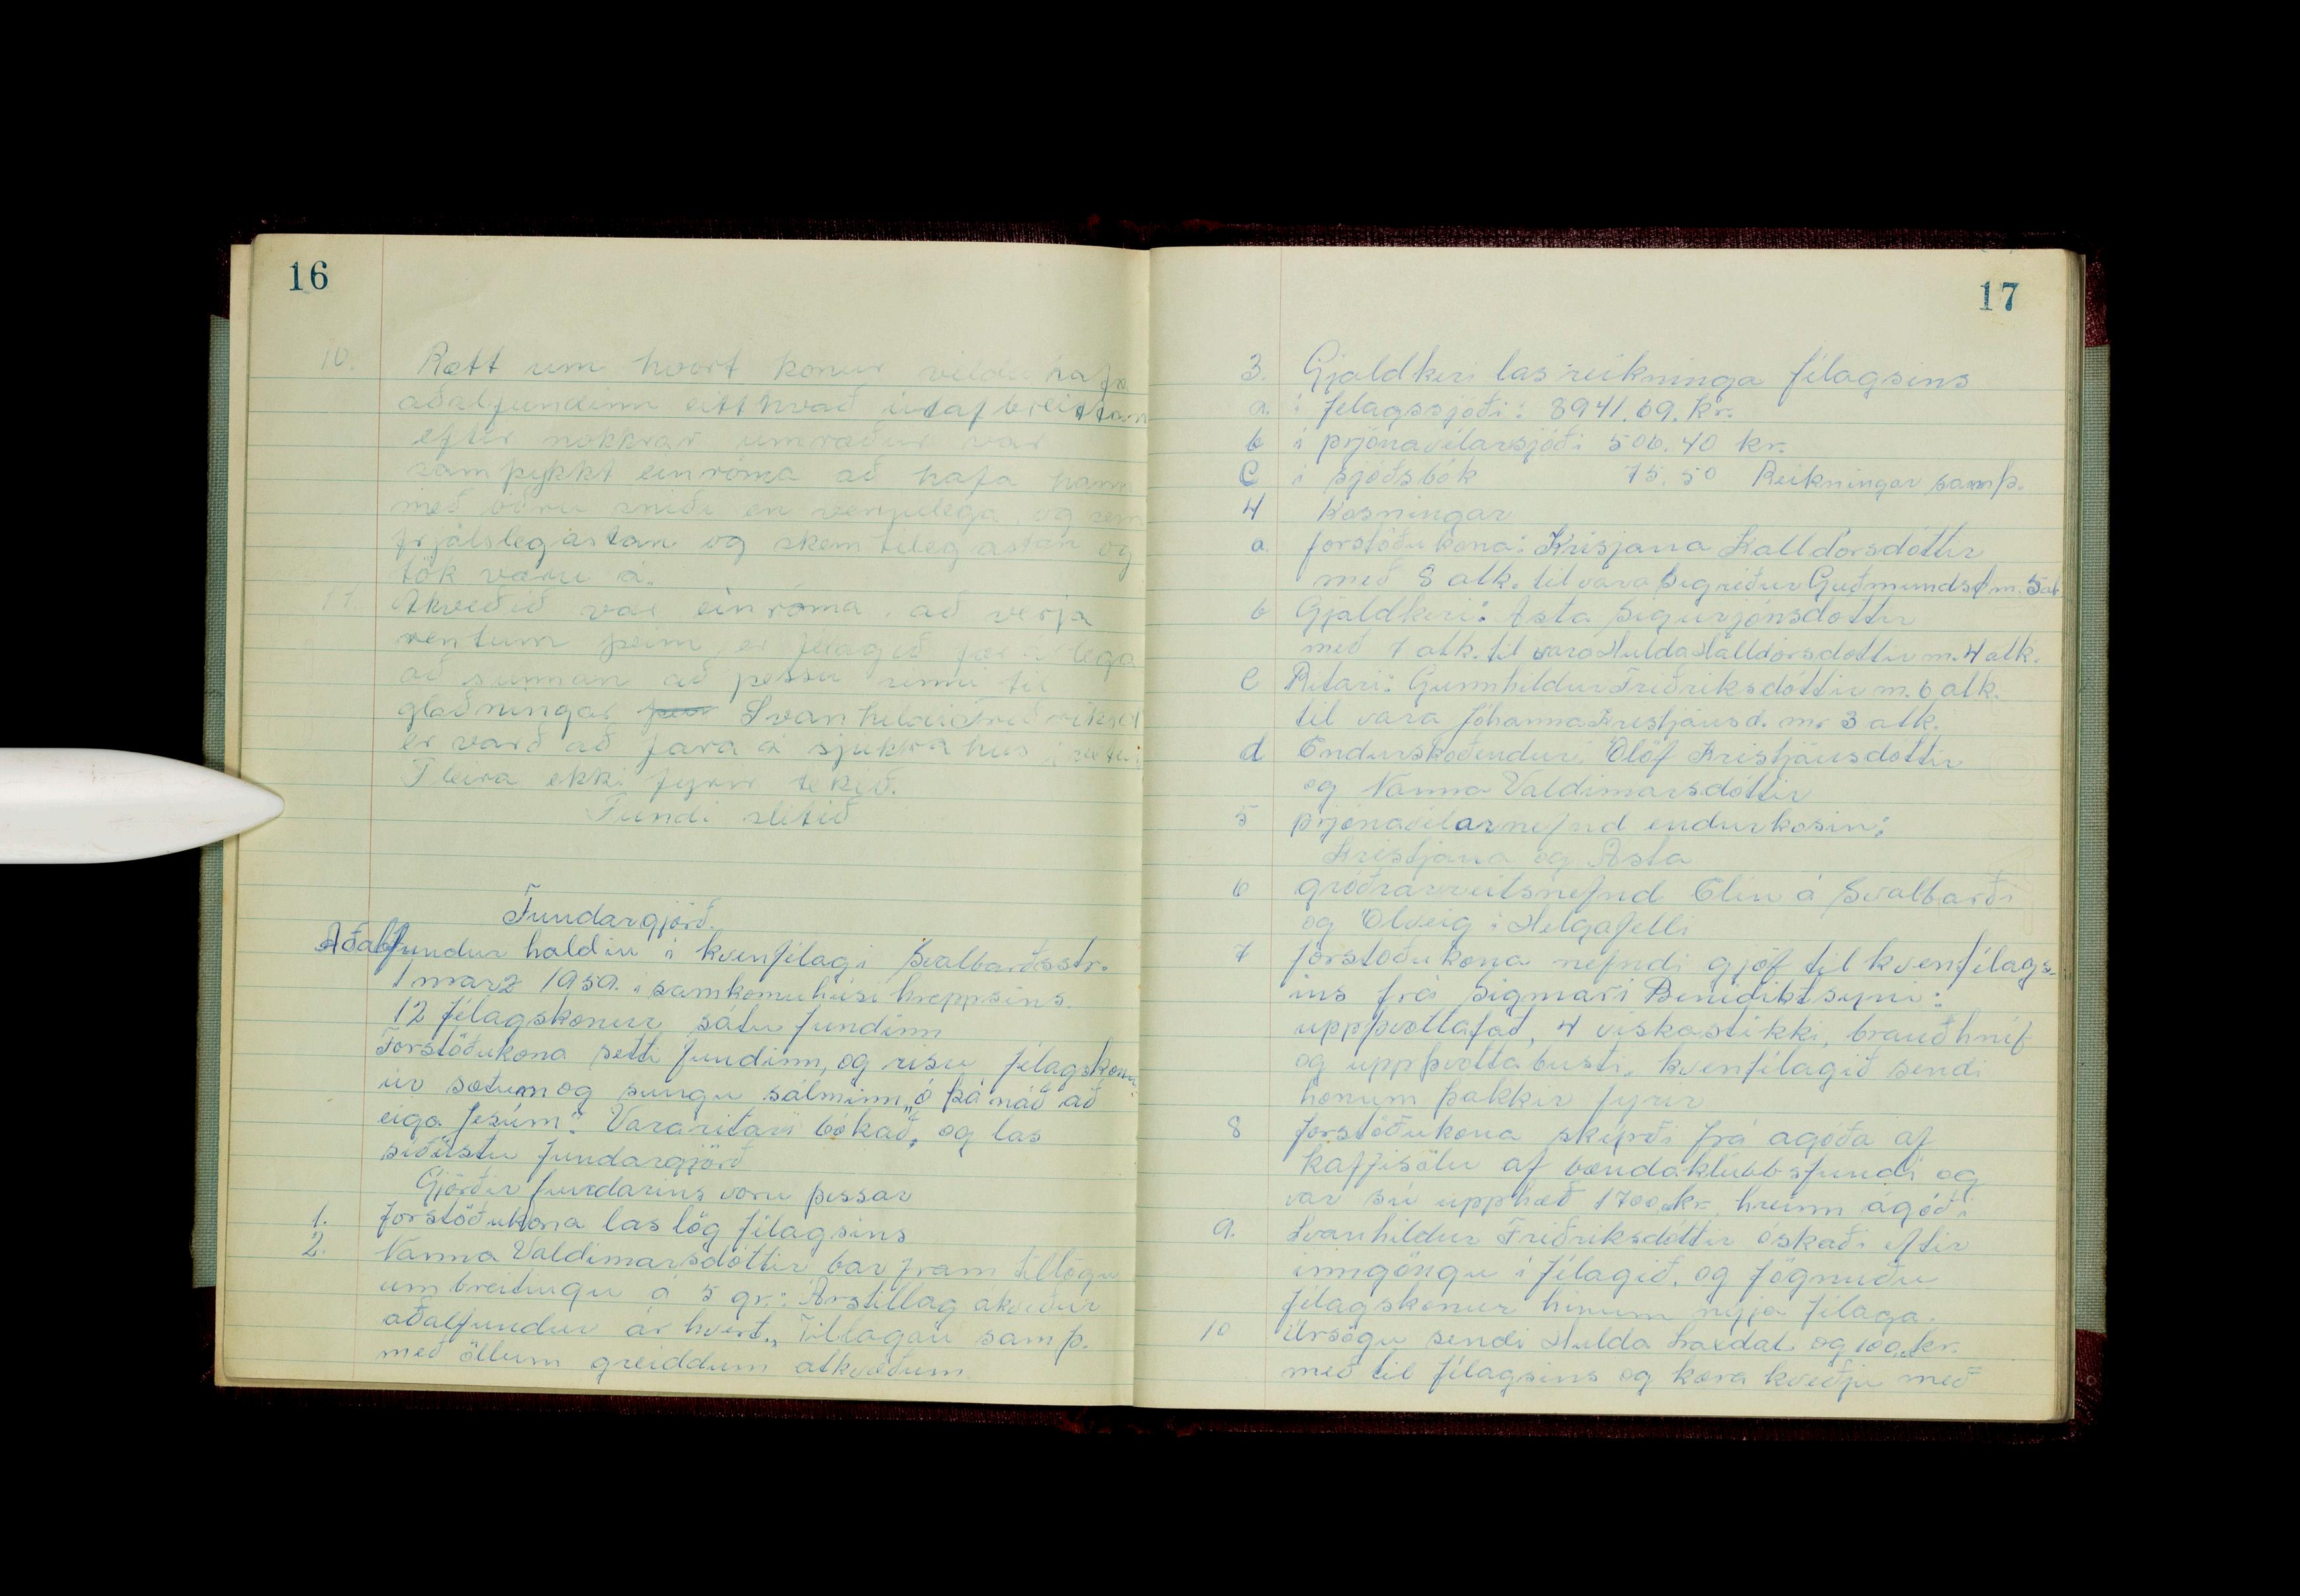 16
10. Rætt um hvort konur vildu hafa
aðalfundinn eitthvað útaf breittann
eftir nokkrar umræður var
samþykkt einróma að hafa hann
með öðru sniði en venjulega, og sem
frjálslegastan og skemtilegastan og
tök væru á.
11. Akveðið var einróma, að verja
rentum þeim, er félagið fær
að sunnan að þessu sinni til
glaðningar Svanhildi Friðriksd
er varð að fara á sjúkra hús í vetur
Fleira ekki fyrir tekið.
Fundi slitið
Fundargjörð.
Aðalfundur haldin í kvenfélagi Svalbarðsstr.
1 marz 1959. í samkomuhúsi hreppsins.
12 félagskonur sátu fundinn
Forstöðukona setti fundinn, og risu félagskonur
úr sætum og sungu sálminn „ó þá náð að
eiga Jesúm". Vararitari bókað, og las
síðustu fundargjörð
Gjörðir fundarins voru þessar
1. Forstöðukona las lög félagsins
2. Nanna Valdimarsdóttir bar fram tillögu
um breitingu á 5 gr.: Árstillag akveður
aðalfundur ár hvert„ Tillagan samþ.
með öllum greiddum atkvæðum.
17
3. Gjaldkeri las reikninga félagsins
a. í félagssjóði: 8941.69. kr.
b í prjónavélarsjóði 506.40 kr.
C í sjóðsbók 75.50 Reikningar samþ.
4 Kosningar
a. forstöðukona: Krisjana Halldórsdóttir
með 8 atk. til vara Sigríður Guðmundsd m. 5 at
b Gjaldkeri: Asta Sigurjónsdottir
með 7 atk. til vara Hulda Halldórsdottir m. 4 atk.
C Ritari: Gunnhildur Friðriksdóttir m. 6 atk.
til vara Jóhanna Kristjánsd. m. 3 atk.
d Endurskoðendur: Ólöf Kristjánsdottir
og Nanna Valdimarsdóttir
5 prjónavélarnefnd endurkosin;
Kristjana og Asta
6 gróðrarreitsnefnd Elín á Svalbarði
og Ólveig í Helgafelli
7 forstoðukona nefndi gjöf til kvenfélags-
ins frá Sigmari Benidiktsyni:
uppþvottafat, 4 viskastikki, brauðhníf
og uppþvotta busti. kvenfélagið sendi
honum þakkir fyrir
8 forstöðukona skýrði frá agóða af
kaffisölu af bændaklúbbsfundi og
var sú upphæð 1700 kr. hreinn ágóði
9. Svanhildur Friðriksdóttir óskaði eftir
inngöngu í félagið, og fögnuðu
félagskonur hinum nýja félaga.
10 Úrsögn sendi Hulda Laxdal og 100 kr.
með til félagsins og kæra kveðju með